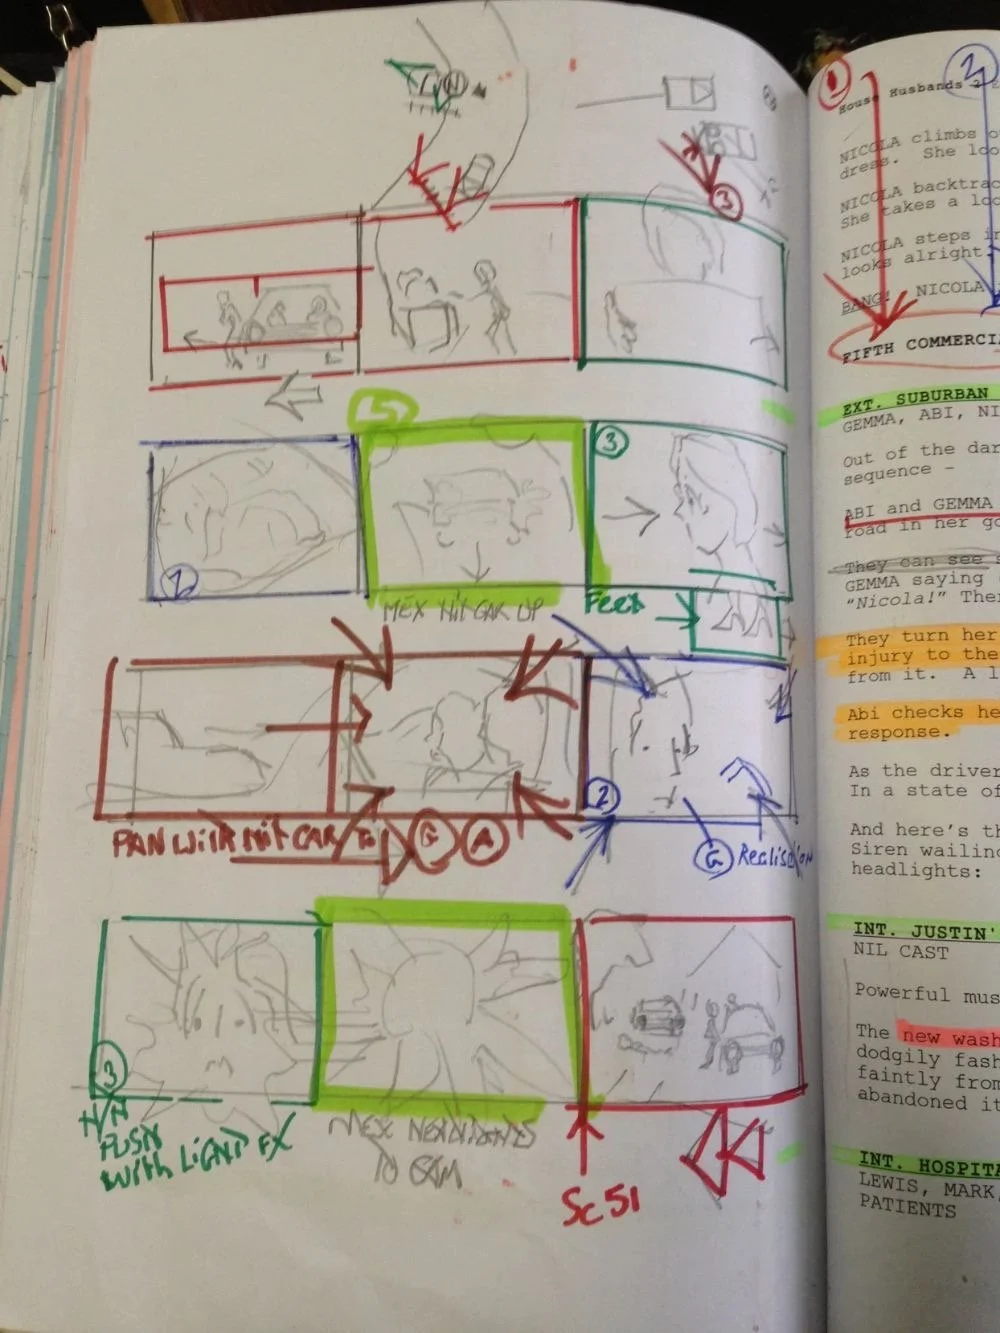 3
5
1
3
MEX HIT CAR UP
FEET
PAN WITH HIT CAR TO G A
2
G Realisation
3
PUSH
WITH LIGHT FX
TO CAM
Sc 51
1
2
House Husbands 2
NICOLA climbs o
dress. She loo
NICOLA backtrac
She takes a loo
NICOLA steps in
looks alright.
BANG! NICOLA
FIFTH COMMERCIA
EXT. SUBURBAN
GEMMA, ABI, NI
Out of the dar
sequence –
ABI and GEMMA
road in her go
They can see s
GEMMA saying
“Nicola!” Ther
They turn her
injury to the
from it. A l
Abi checks he
response.
As the driver
In a state of
And here’s th
Siren wailin
headlights:
INT. JUSTIN'
NIL CAST
Powerful mus
The new wash
dodgily fash
faintly from
abandoned it
INT. HOSPITA
LEWIS, MARK
PATIENTS